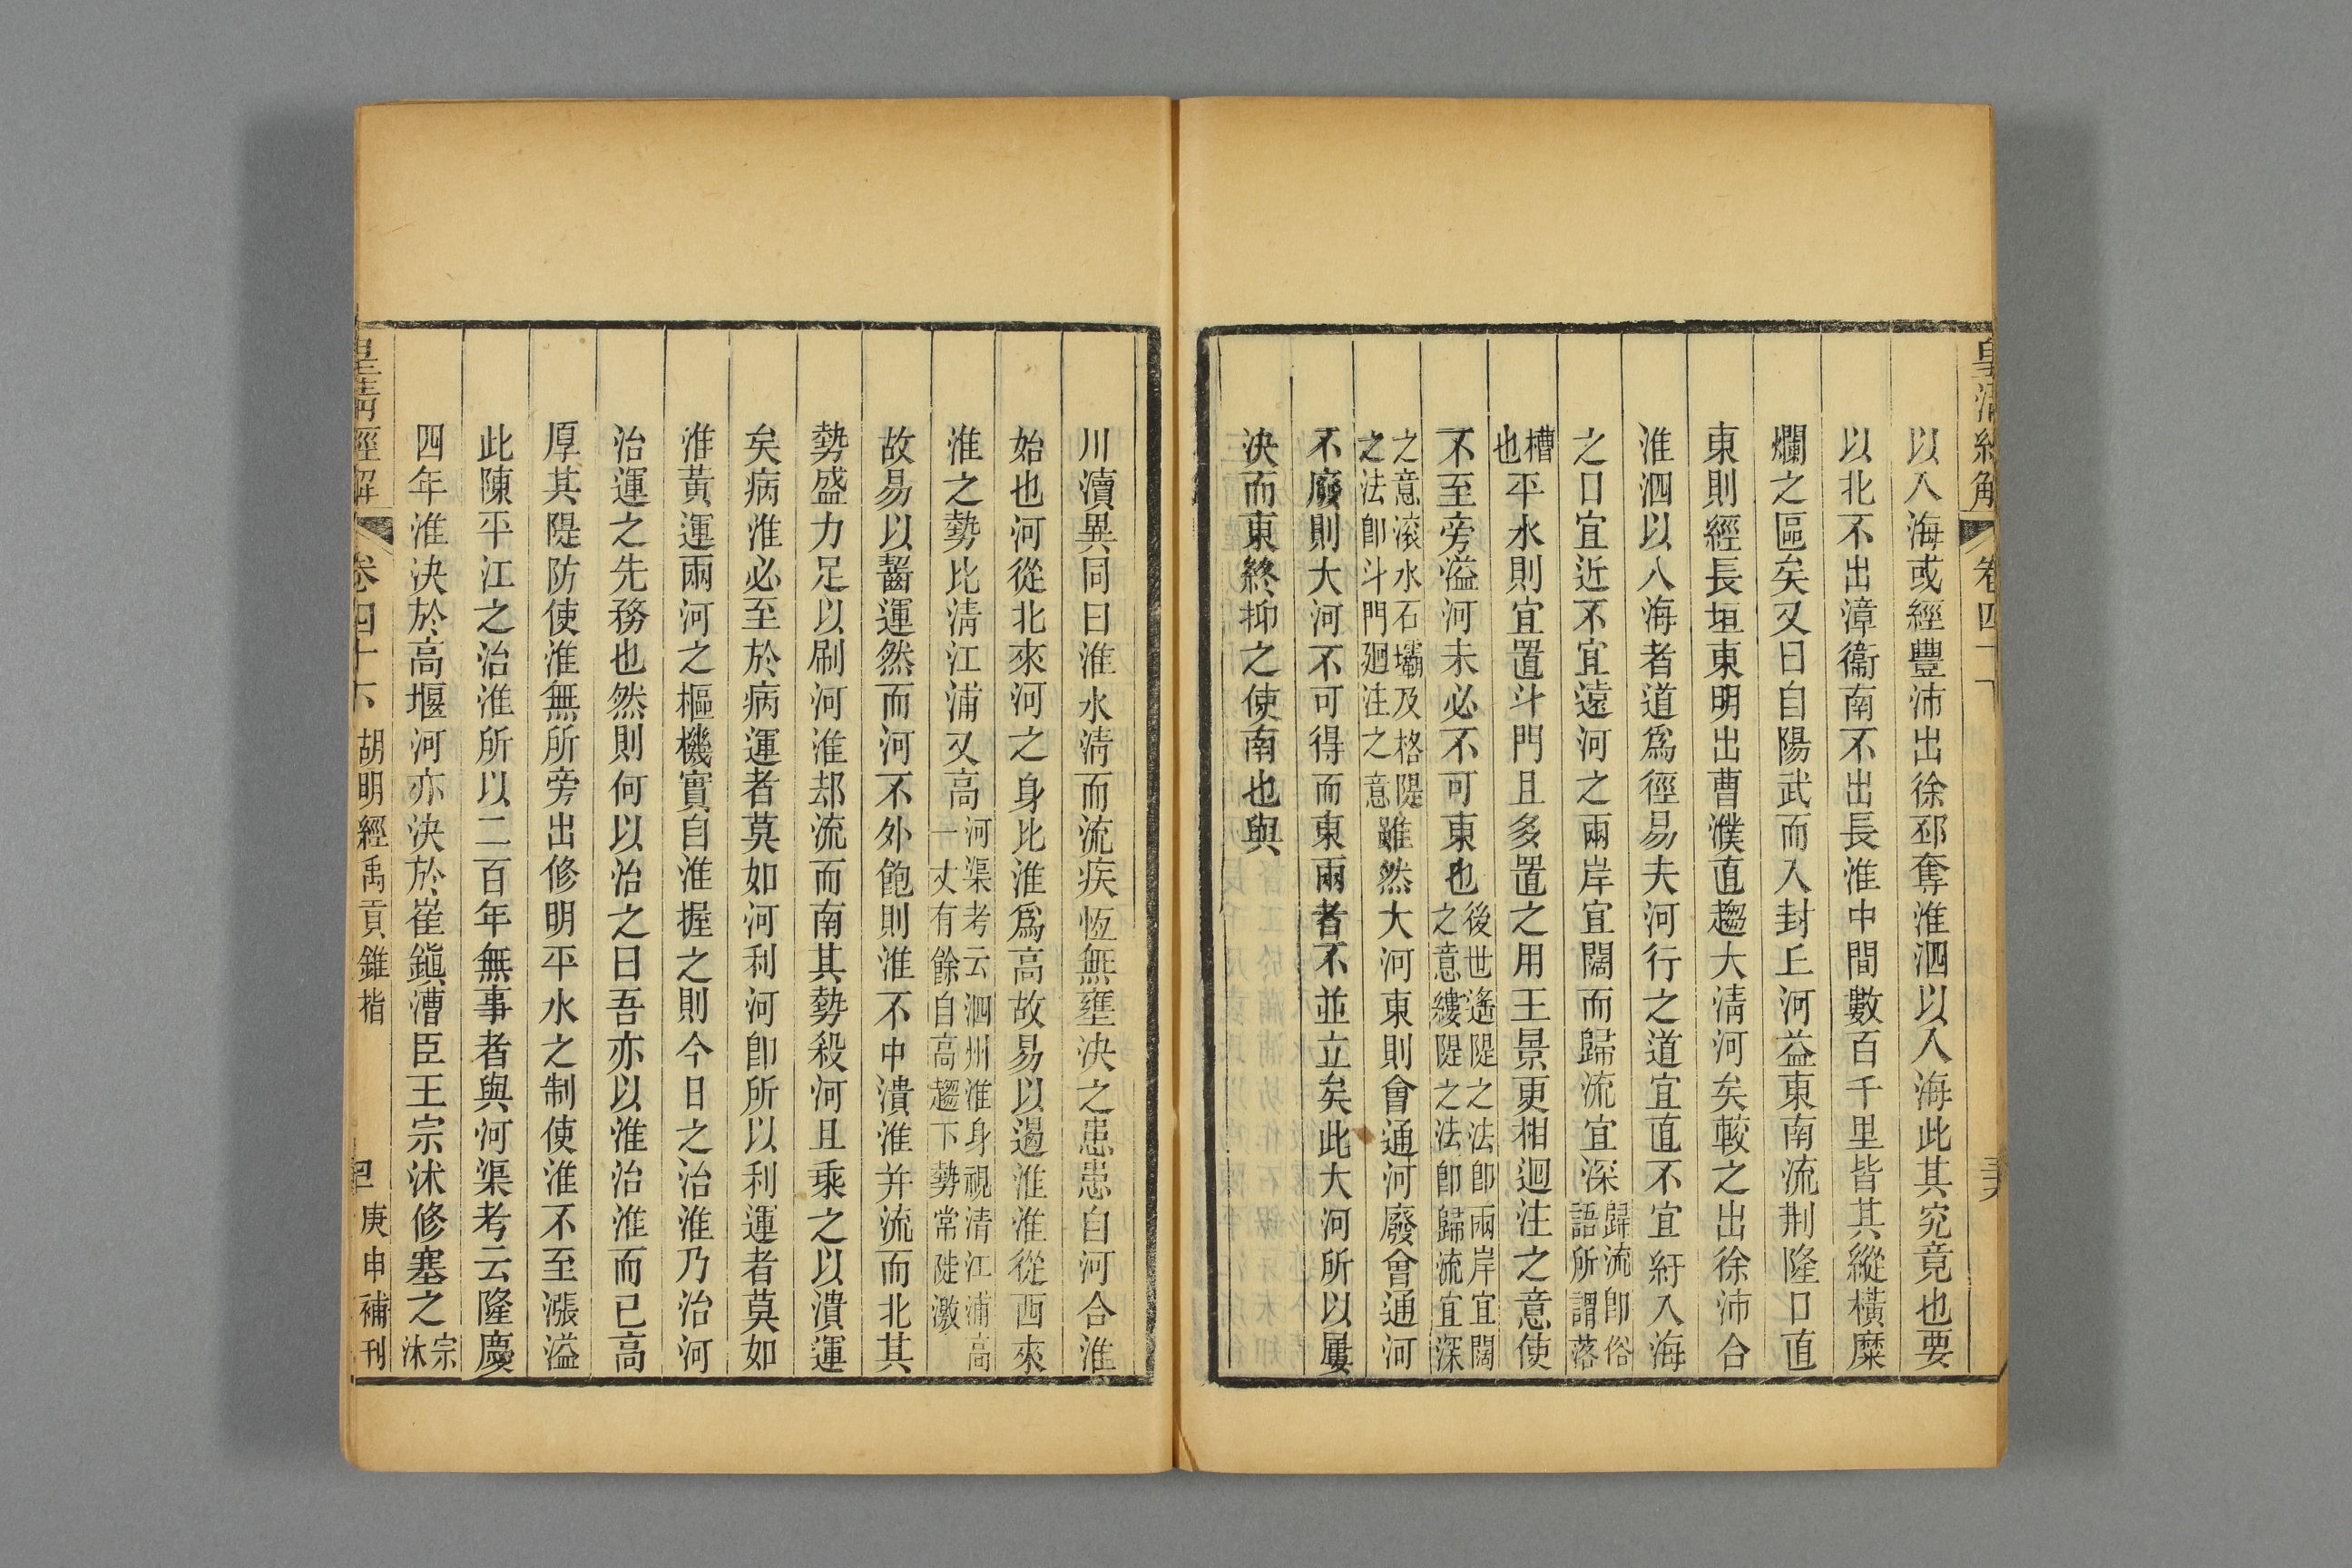 皇清經解 卷四十下
以入海或經豐沛出徐邳奪淮泗以入海此其究竟也要
以北不出漳衞南不出長淮中間數百千里皆其縱橫糜
爛之區矣又曰自陽武而入封丘河益東南流荆隆口直
東則經長垣東明出曹濮直趨大淸河矣較之出徐沛合
淮泗以入海者道爲徑易夫河行之道宜直不宜紆入海
之口宜近不宜遠河之兩岸宜闊而歸流宜深歸流卽俗語所謂落
槽也平水則宜置斗門且多置之用王景更相迴注之意使
不至旁溢河未必不可東也後世遙隄之法卽兩岸宜闊之意縷隄之法卽歸流宜深
之意滚水石壩及格隄之法卽斗門廻注之意雖然大河東則會通河廢會通河
不廢則大河不可得而東兩者不並立矣此大河所以屢
決而東終抑之使南也與
川瀆異同曰淮水淸而流疾恆無壅決之患患自河合淮
始也河從北來河之身比淮爲高故易以遏淮淮從西來
淮之勢比淸江浦又高河渠考云泗州淮身視清江浦高一丈有餘自高趨下勢常陡激
故易以齧運然而河不外飽則淮不中潰淮并流而北其
勢盛力足以刷河淮却流而南其勢殺河且乘之以潰運
矣病淮必至於病運者莫如河利河卽所以利運者莫如
淮黃運兩河之樞機實自淮握之則今日之治淮乃治河
治運之先務也然則何以治之曰吾亦以淮治淮而已高
厚其隄防使淮無所旁出修明平水之制使淮不至漲溢
此陳平江之治淮所以二百年無事者與河渠考云隆慶
四年淮決於高堰河亦決於崔鎭漕臣王宗沭修塞之宗沭
皇清經解 卷四十下 胡明經禹貢錐指 庚申補刊